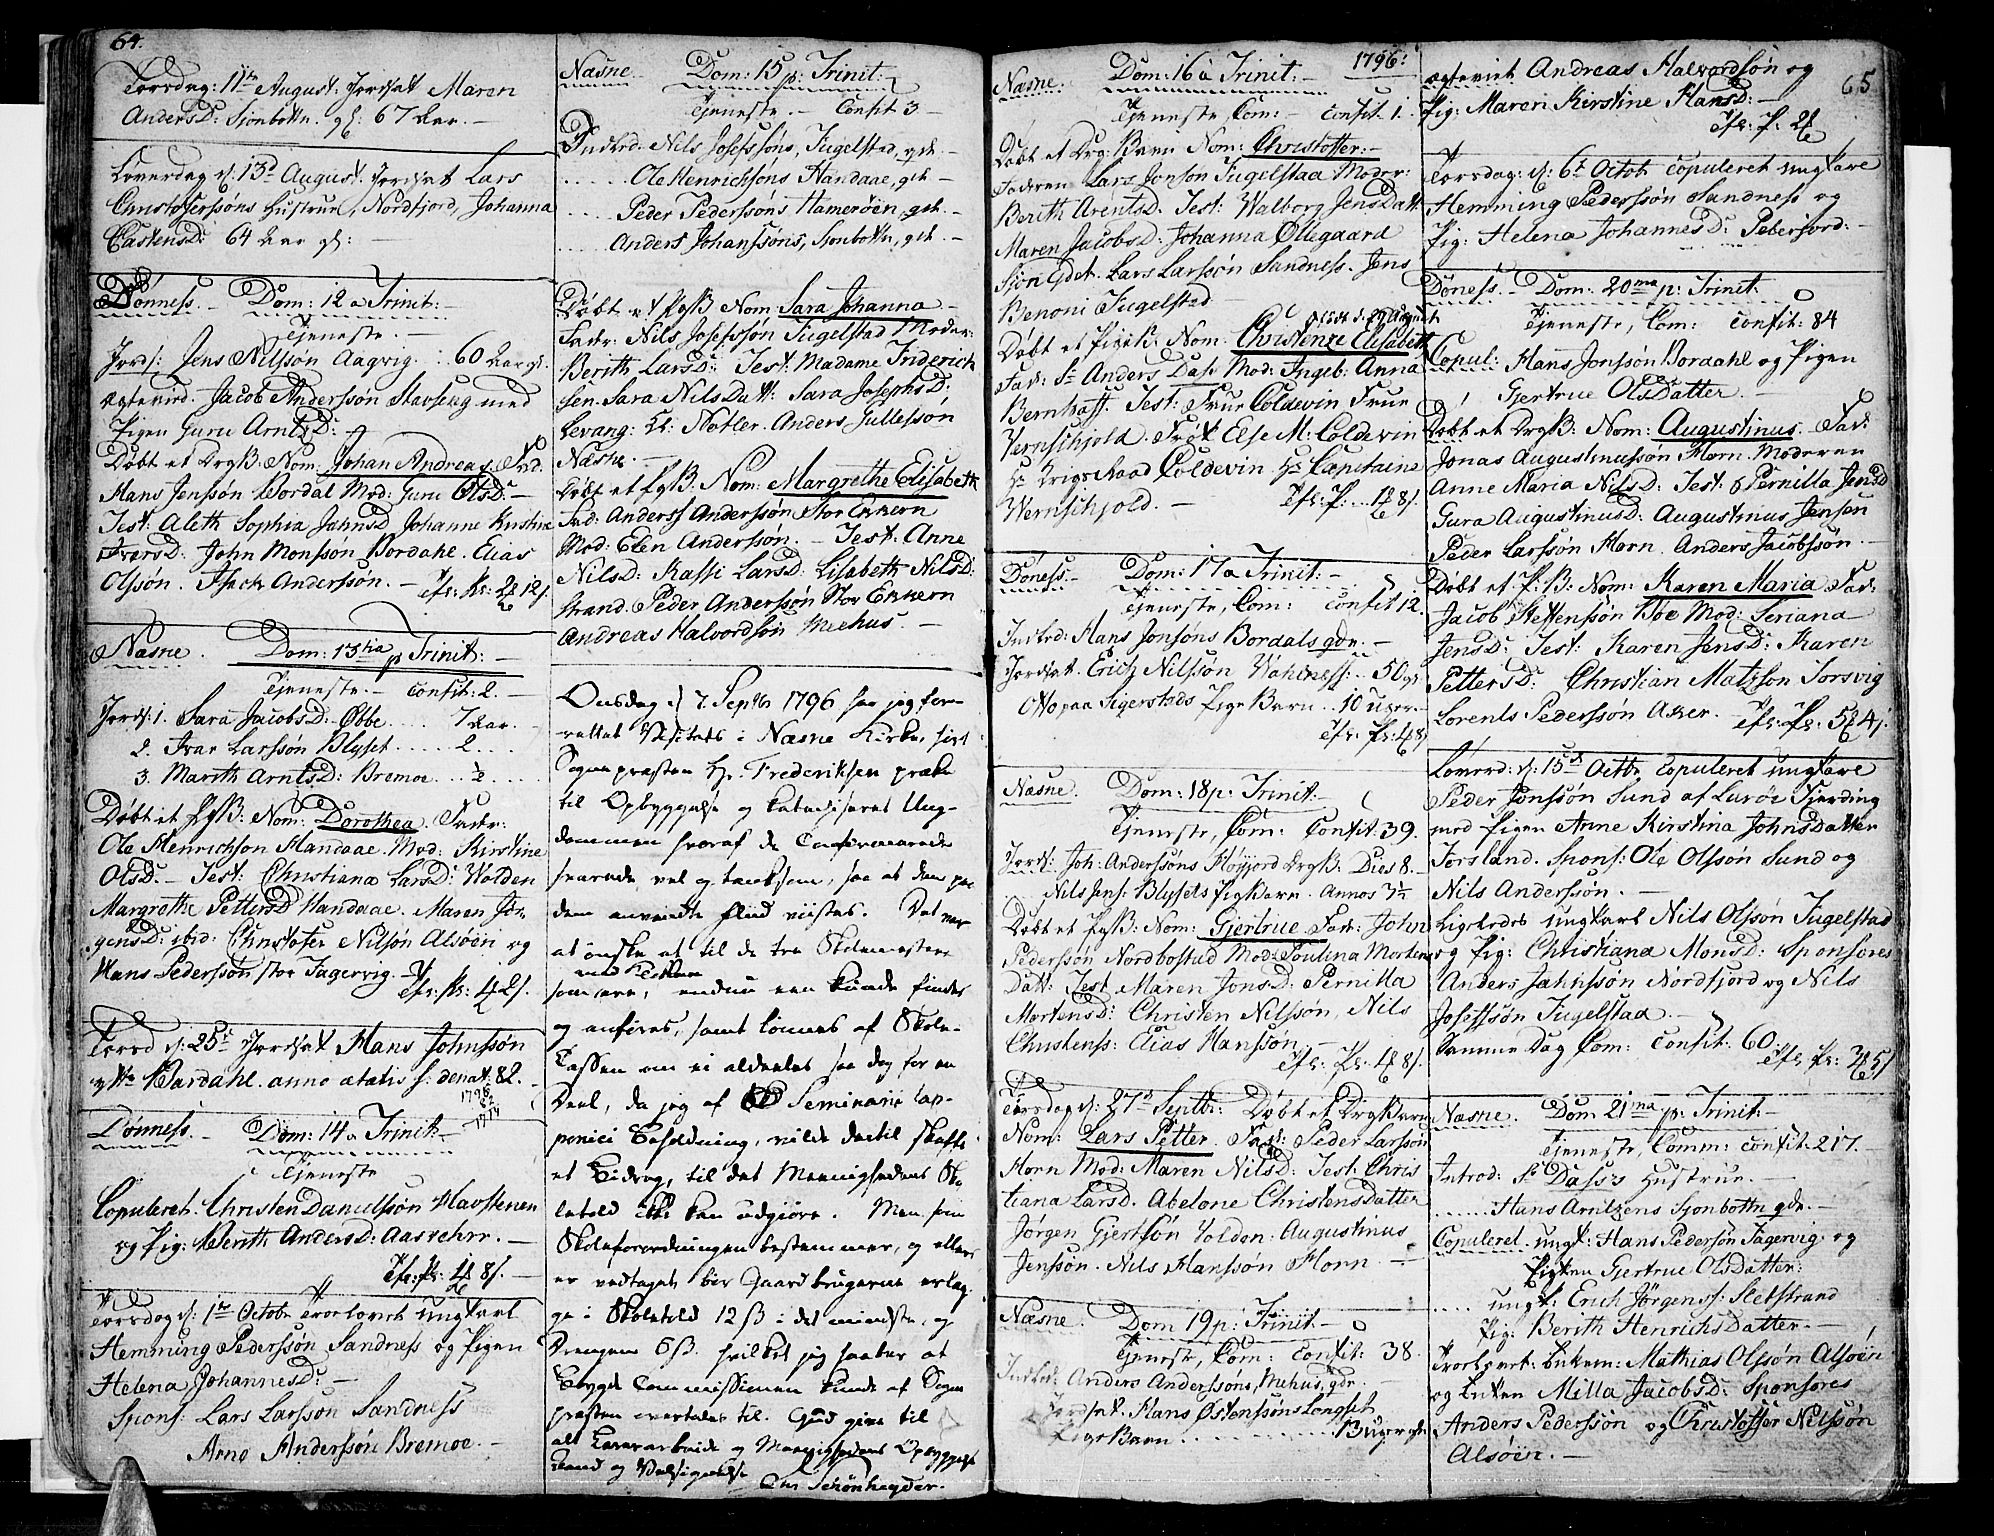 64.
Torsdag: 11te August: Jordsat Maren
Andersd: Sjonbotten. gl: 67 Aar. —
Løverdag d: 13de August. Jordsat Lars
Christofferssøns Hustrue, Nordfjord, Johanna
Castensd: 64 Aar gl: —
Dønness. Dom: 12 a Trinit: —
Tjeneste. —
Jords: Jens Nilssøn Aagvig. : 60 Aar gl.
Jacob Anderssøn Stavseng med
Pigen Guru ArntsD: —
Døbt et DrgB: Nom: Johan Andreas. Fad.
Hans Jenssøn Bordal Mod: Guru OlsD: —
Test: Aleth Sophia JahnsD Johanne Kristina
IversD: John Monssøn Bordahl. Elias
Olssøn. Isach Anderssøn. — Tfl: Pr: 2 12 s.
Næsne. Dom: 13tia p Trinit: —
Tjeneste. — Confit: 2. —
Jords: 1. Sara JacobsD: Øbbe. 7 Aar. —
2. Ivar Larssøn Blyset ..... 2. ...
3. Marith ArntsD: Bremoe ... ½ ....
Døbt et PgB: Nom: Dorothea. Fader:
Ole Henrichson Handaae. Mod: Kirstine
OlsD. — Test: Christiana LarsD: Wolden
Margrethe PettersD Handaae. Maren Jør,
gensD: ibid: Christofer Nilsøn Alsøen og
Hans Pederssøn stor Fagervig. —
Tfl: Pr: 4 2 s.
Torsd d: 25de Jordsat Hans Johnssøn
Bardahl. anno ætatis s: denat: 82. —
1796
1714
Dønness. — Dom: 14 a Trinit: —
Tjeneste
Copuleret. Christen Danielssøn Havstenen
og Pig: Berith AndersD: Aasvehr. —
Tfl: Pr: 4 8 s. —
Torsdag d: 1te Octobr trorlovet ungkarl
Hemming Pederssøn Sandness og Pigen
Helena JohannesD: —
Spons: Lars Larssøn Sandness
Arne Anderssøn Bremoe. —
Næsne. Dom: 15 p: Trinit: —
Tjeneste. — Confit 3 —
Indled. Nils Josefssøns, Fugelstad, gdt. —
..... Ole Henrichsøns Handaae, gdt —
.... Peder Pederssøns Hamerøen, gdt. —
.... Anders Johanssøns, Sjonbotten, gdt. —
Døbt et PgB Nom: Sara Johanna —
Fader: Nils Josefssøn Fugelstad Moder:
Berith LarsD: Test: Madame Friderich
sen. Sara NilsDatt: Sara JosephsD:
Levang: Kl: Notler. Anders Gullessøn
Næsne. —
Døbt et PgB: Nom: Margrethe Elisabeth
Fad: Anders Anderssøn Stor Ekkern
Mod: Elen Anderssøn. — Test: Anne
NilsD: Kassi LarsD: Lisabeth NilsD:
Strand. Peder Anderssøn Stor Ekkern
Andreas Halvordsøn Meehus. —
Onsdag d 7. Septbr 1796 har jeg for-
rettet Visitats i Næsne Kirke, hvor
Sognepræsten Hr. Frederiksen præke
til Opbyggelse og Katechiseret Ung-
dommen hvoraf de Confirmerede
svarede vel og tænksom, saa at den paa
dem anvendte Fliid viistes. Det var
at ønske at til de tre Skolemestere
som ere, endnu een kunde findes
og anføres, samt lønnes af Skole-
Cassen om ei aldeeles saa dog for en
Deel, da jeg af Seminarii Lap-
ponici Besoldning, vilde dertil skaffe
et Bidrag, til det Meenighedens Sko-
lehold ikke kan udgiøre. Men som
Skoleforordningen bestemmer, og ellers
er vedtaget bør Gaardbrugerne erlæg-
ge i Skolehold 12 ß i det mindste, og
Drengene 6 ß. hvilket jeg haaber at
Bøyde Commissionen kunde af Sogne
præsten overtales til. Gud give til
alt Lærearbeide og Meenighedens Opbyggelse
Naad og Velsignelse
Schønheyder.
1796:
65
Næsne. Dom: 16 a Trinit: —
Tjeneste, Com: — Confit. 1.
Døbt et Drg: Barn Nom: Christoffer: —
Faderen Lars Jonson Fugelstaa Moder:
Berith ArentsD. Test: Walborg JensDatt
Maren JacobsD: Johanna Ollegaard
Sjongdet. Lars Larssøn Sandness. Jens
Benoni Fugelstad —
født d. 29 August
Døbt et PigeB: Nom: Christence Elisabeth
Fad: Sr Anders Dass Mod: Ingeb: Anna
Bernhoft. Test: Frue Coldevin Frue
Wernschjold. Frøk Else M: Coldevin
Hr Krigsraad Coldevin Hr Capitaine
Wernschjold. — Tfl: P. ... 4 8 s.
Døness. — Dom: 17 a Trinit: —
Tjeneste, Com: Confit 12.
Indled: Hans Jonsøns Bordals gdt. —
Jordsat. Erich Nilssøn Wahtness: .. 50 gl.
Otto paa Sigerstads Pige Barn .. 10 uger. —
Tfl: Pr: 4 8 s
Næsne. Dom: 18 p: Trinit: —
Tjeneste, Com: Confit. 39.
Jords: Joh: Anderssøns Fløyjord DrgB: Dies 8. —
Nils Jens: Blysets PigBarn. Annos 3½
Døbt et PgB: Nom: Gjertrue Fad: John
Pederssøn Nordbostad Mod: Poulina Morten
Datt: Test Maren JonsD: Pernilla
MortensD: Christen Nilssøn, Nils
Christenss: Elias Hanssøn. —
Tfl: Pr: 4 8 s.
Torsdag d: 27de Septbr: Døbt et Drg Barn
Nom: Lars Petter. Fad: Peder Larssøn
Horn Mod: Maren NilsD: Test: Chris
tiana LarsD. Abelone ChristensDatter
Jørgen Gjertsøn Volden: Augustinus
Jenssøn. Nils Hanssøn Horn. —
Næsne. Dom 19 p: Trinit —
Tjeneste, Com: Confit: 38.
Indled: Anders Anderssøns, Mehus, gdt. —
Jordsat. Hans Østenssøns Longset
Pige Barn ........... 13 uger gl.
Andreas Halvordsøn og
Pig: Maren Kirstine HansD: —
Tfl: P: 2
Torsdag: d: 6te Octob: Copuleret ungkarl
Hemming Pederssøn Sandness og
Pig: Helena JohannesD: Pebersord: —
Døness. — Dom: 20ma p: Trinit:
Tjeneste, Com: Confit: 84
Copul: Hans Jonssøn Bordahl og Pigen
Gjertrue OlsDatter. —
Døbt et DrgB: Nom: Augustinus. Fad:
Jonas Augustinussøn Horn. Moderen
Anne Maria NilsD: Test: Pernilla JensD
Gura AugustinusD: Augustinus Jensen
Peder Larssøn Horn. Anders Jacobssøn. —
Døbt et P: B: Nom: Karen Maria Fad:
Jacob Steffenssøn Boe Mod: Seriana
JensD: Test: Karen JensD: Karen
PettersD: Christian Matzson Torsvig
Lorents Pederssøn Aker. Tfl: Pr: 5 4 s.
Løverd: d: 15de Octbr Copuleret ungkarl
Peder Jonssøn Sund af Lurøe Fjerding
med Pigen Anne Kirstina JohnsDatter
Forsland. Spons: Ole Olssøn Sund og
Nils Anderssøn. —
Ligeledes ungkarl Nils Olssøn Fugelstad
og Pig: Christiana MonsD: Sponsores
Anders Jahnssøn Nordfjord og Nils
Josefssøn Fugelstaa. —
Samme Dag Com: Confit: 60.
Tfl: Pr: 3 5 s
Næsne. Dom 21ma p: Trinit: —
Tjeneste, Comm: Confit. 217. —
Introd: Sr Dass's Hustrue. —
...... Hans Arntzens Sjonbotten gdt. —
Copuleret. ungk: Hans Pedersøn Fagervig og
Pigen Gjertrue OlsDatter:
.... ungk: Erich Jørgenss: Sletstrand
Pig: Berith HenrichsDatter. —
Enkem: Mathias Olssøn Alsøen
og Enken Milla JacobsD: Sponsores
Anders Pederssøn og Christoffer Nilssøn
Alsøen. —